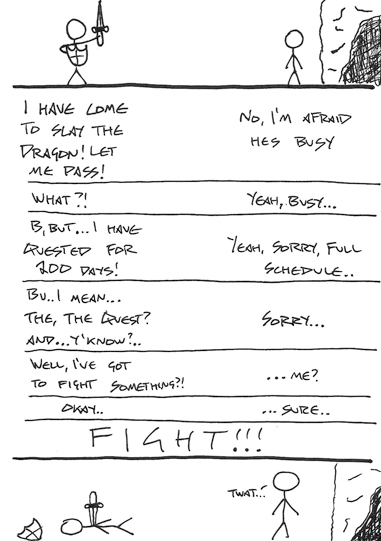 I HAVE COME
TO SLAY THE
DRAGON! LET
ME PASS!
NO, I'M AFRAID
HES BUSY
WHAT?!
YEAH, BUSY...
B, BUT... I HAVE
QUESTED FOR
200 DAYS!
YEAH, SORRY, FULL
SCHEDULE..
BU.. I MEAN...
THE, THE QUEST?
AND...Y'KNOW?..
SORRY...
WELL, I'VE GOT
TO FIGHT SOMETHING?!
...ME?
OKAY..
...SURE..
FIGHT!!!
TWAT..